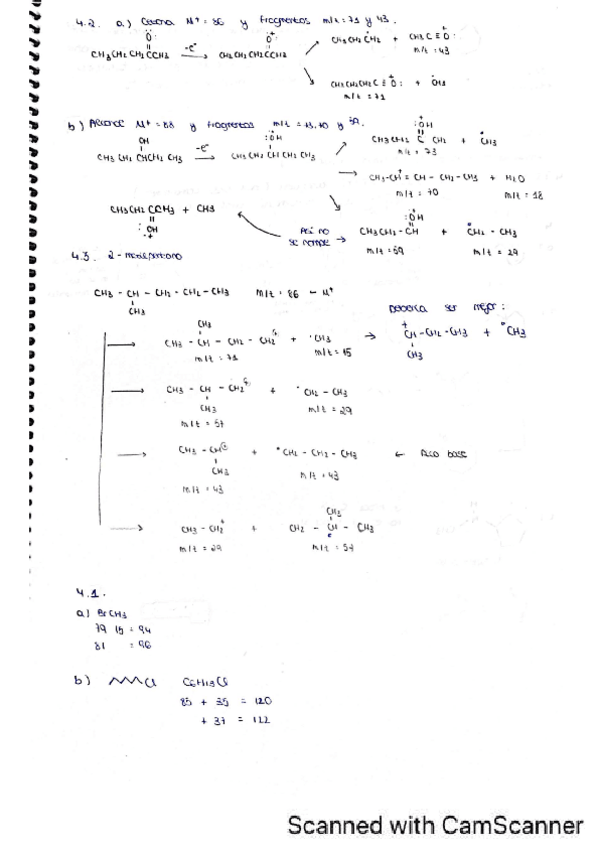 4.2. a.) Cetona M⁺ = 86 y fragmentos m/z = 71 y 43.
CH3CH2CH2CCH3 -e⁻ CH3CH2CH2CCH3
CH3CH2ĊH2 + CH3C≡O
m/z = 43
CH3CH2CH2C≡O: + ĊH3
m/z = 71
b) M⁺ = 88 y fragmentos m/z = 73, 70 y 59.
OH :ÖH
CH3CH2CHCH2CH3 -e⁻ CH3CH2CHCH2CH3
m/z = 73
+ ĊH3
CH3-CH⁺=CH-CH2-CH3 + H2O
m/z = 70 m/z = 18
CH3CH2CCH3 + CH3
:OH
Así no se rompe →
CH3CH2-CH + ĊH2-CH3
m/z = 59 m/z = 29
4.3. 2-metilpentano
CH3 - CH - CH2 - CH2 - CH3 m/z = 86 - M⁺
CH3
Debería ser mejor:
CH3
CH3 - CH - CH2 - CH2⁺ + ·CH3 → CH-CH2-CH3 + ·CH3
m/z = 71 m/z = 15 CH3
CH3 - CH - CH2⁺ + ·CH2 - CH3
CH3 m/z = 29
m/z = 57
CH3 - CH⁺ + ·CH2 - CH2 - CH3 ← Pico base
CH3 m/z = 43
m/z = 43
CH3
CH3 - CH2⁺ + CH2 - CH - CH3
m/z = 29 m/z = 57
4.1.
a) BrCH3
79 15 = 94
81 = 96
b) Cl C6H13Cl
85 + 35 = 120
+ 37 = 122
Scanned with CamScanner